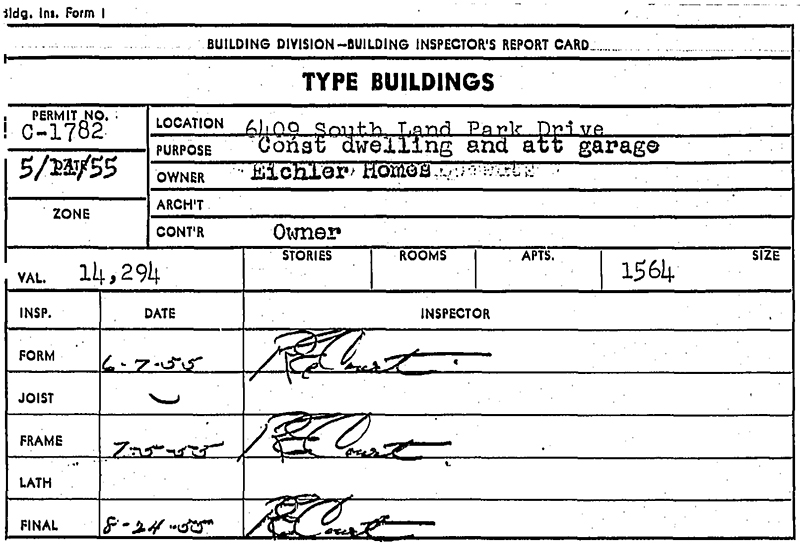 Bldg. Ins. Form 1
BUILDING DIVISION—BUILDING INSPECTOR'S REPORT CARD
TYPE BUILDINGS
PERMIT NO. C-1782
LOCATION 6409 South Land Park Drive
PURPOSE Const dwelling and att garage
5/ /55 DATE
OWNER Eichler Homes
ZONE
ARCH'T
CONT'R Owner
VAL. 14,294 STORIES ROOMS APTS. 1564 SIZE
INSP. DATE INSPECTOR
FORM 6-7-55 RE Court
JOIST
FRAME 7-5-55 RE Court
LATH
FINAL 8-24-55 RE Court